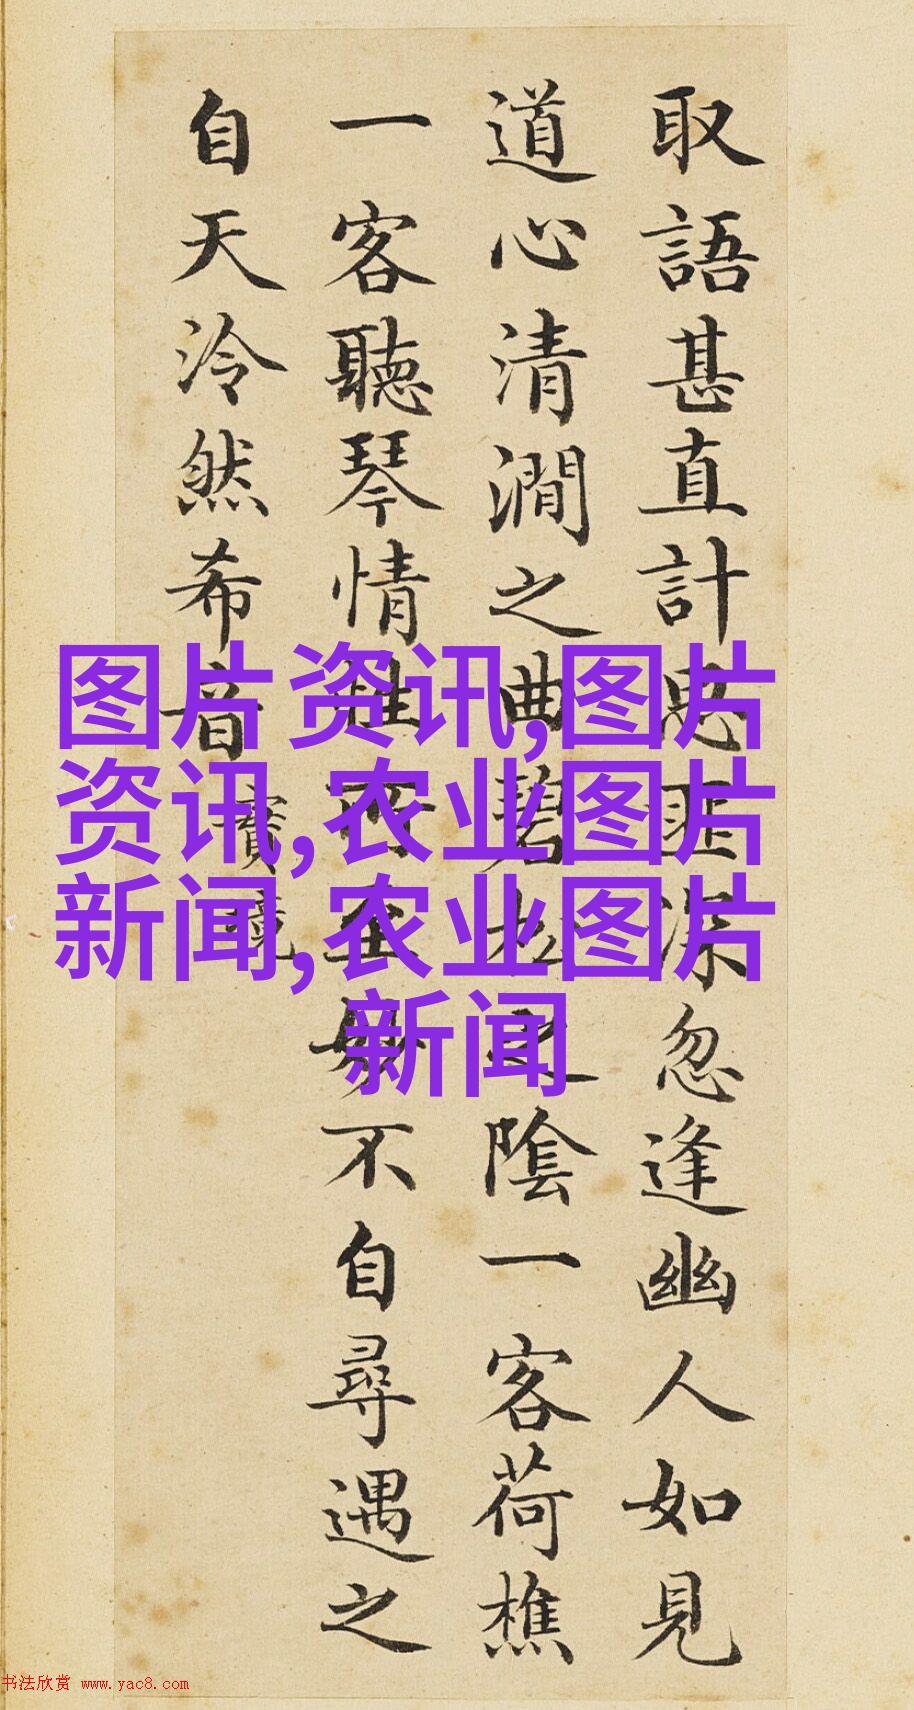 取語甚直計思匪深忽逢幽人如見
道心清澗之曲碧松之陰一客荷樵
一客聽琴情性所至妙不自尋遇之
自天泠然希音
實境
图片资讯,图片
资讯,农业图片
新闻,农业图片
新闻
书法欣赏 www.yac8.com